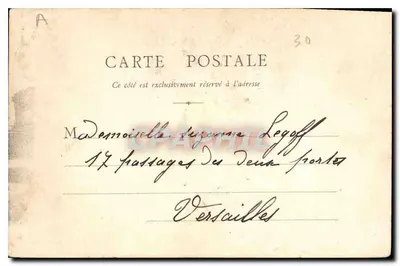 A
30
CARTE POSTALE
Ce côté est exclusivement réservé à l'adresse
Mademoiselle suzanne Legoff
17 passages des deux portes
Versailles